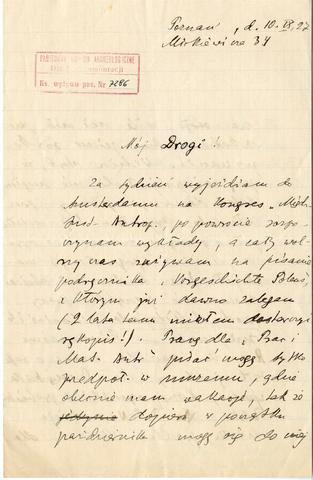 Poznań, d. 10.IX.27
Mickiewicza 34
PAŃSTWOWE MUZEUM ARCHEOLOGICZNE
Ks. wpływu poz. Nr 7286
Mój Drogi!
Za tydzień wyjeżdżam do
Amsterdamu na Kongres „Międz.
Inst. Antrop., po powrocie rozpo-
czynam wykłady, a cały wol-
ny czas zużywam na pisanie
podręcznika „Vorgeschichte Polens",
z którym już dawno zalegam
(2 lata temu miałem dostarczyć
rękopis!). Pracę dla „Prac i
Mat. Antr." pisać mogę tylko
przedpoł. w muzeum, gdzie
obecnie mam wakacje, tak że
jedynie dopiero z początku
października mogę się do niej